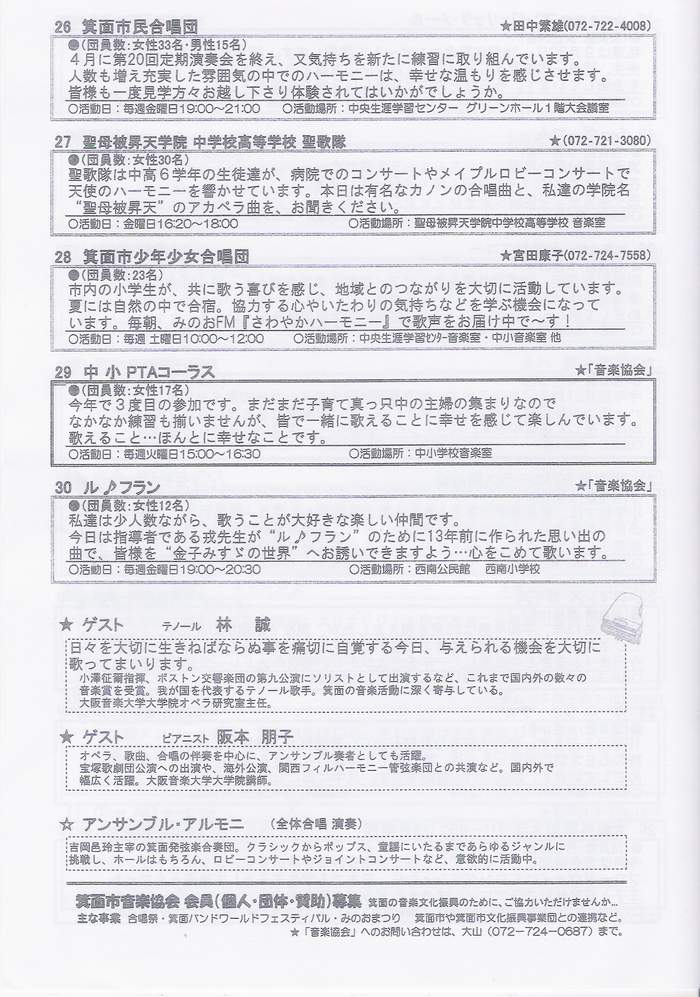 26 箕面市民合唱団 ★田中繁雄(072-722-4008)
●(団員数:女性33名・男性15名)
4月に第20回定期演奏会を終え、又気持ちを新たに練習に取り組んでいます。
人数も増え充実した雰囲気の中でのハーモニーは、幸せな温もりを感じさせます。
皆様も一度見学方々お越し下さり体験されてはいかがでしょうか。
○活動日:毎週金曜日19:00~21:00 ○活動場所:中央生涯学習センター グリーンホール1階大会議室
27 聖母被昇天学院 中学校高等学校 聖歌隊 ★(072-721-3080)
●(団員数:女性30名)
聖歌隊は中高6学年の生徒達が、病院でのコンサートやメイプルロビーコンサートで
天使のハーモニーを響かせています。本日は有名なカノンの合唱曲と、私達の学院名
“聖母被昇天”のアカペラ曲を、お聞きください。
○活動日:金曜日16:20~18:00 ○活動場所:聖母被昇天学院中学校高等学校 音楽室
28 箕面市少年少女合唱団 ★宮田康子(072-724-7558)
●(団員数:23名)
市内の小学生が、共に歌う喜びを感じ、地域とのつながりを大切に活動しています。
夏には自然の中で合宿。協力する心やいたわりの気持ちなどを学ぶ機会になって
います。毎朝、みのおFM『さわやかハーモニー』で歌声をお届け中で~す!
○活動日:毎週 土曜日10:00~12:00 ○活動場所:中央生涯学習ｾﾝﾀｰ音楽室・中小音楽室 他
29 中 小 PTAコーラス ★「音楽協会」
●(団員数:女性17名)
今年で3度目の参加です。まだまだ子育て真っ只中の主婦の集まりなので
なかなか練習も揃いませんが、皆で一緒に歌えることに幸せを感じて楽しんでいます。
歌えること…ほんとに幸せなことです。
○活動日:毎週火曜日15:00~16:30 ○活動場所:中小学校音楽室
30 ル♪フラン ★「音楽協会」
●(団員数:女性12名)
私達は少人数ながら、歌うことが大好きな楽しい仲間です。
今日は指導者である戎先生が“ル♪フラン”のために13年前に作られた思い出の
曲で、皆様を“金子みすゞの世界”へお誘いできますよう…心をこめて歌います。
○活動日:毎週金曜日19:00~20:30 ○活動場所:西南公民館 西南小学校
★ ゲスト テノール 林 誠
日々を大切に生きねばならぬ事を痛切に自覚する今日、与えられる機会を大切に
歌ってまいります。
小澤征爾指揮、ボストン交響楽団の第九公演にソリストとして出演するなど、これまで国内外の数々の
音楽賞を受賞。我が国を代表するテノール歌手。箕面の音楽活動に深く寄与している。
大阪音楽大学大学院オペラ研究室主任。
★ ゲスト ピアニスト 阪本 朋子
オペラ、歌曲、合唱の伴奏を中心に、アンサンブル奏者としても活躍。
宝塚歌劇団公演への出演や、海外公演、関西フィルハーモニー管弦楽団との共演など。国内外で
幅広く活躍。大阪音楽大学大学院講師。
☆ アンサンブル・アルモニ (全体合唱 演奏)
吉岡邑玲主宰の箕面発弦楽合奏団。クラシックからポップス、童謡にいたるまであらゆるジャンルに
挑戦し、ホールはもちろん、ロビーコンサートやジョイントコンサートなど、意欲的に活動中。
箕面市音楽協会 会員(個人・団体・賛助)募集 箕面の音楽文化振興のために、ご協力いただけませんか…
主な事業 合唱祭・箕面バンドワールドフェスティバル・みのおまつり 箕面市や箕面市文化振興事業団との連携など。
★「音楽協会」へのお問い合わせは、大山(072-724-0687)まで。